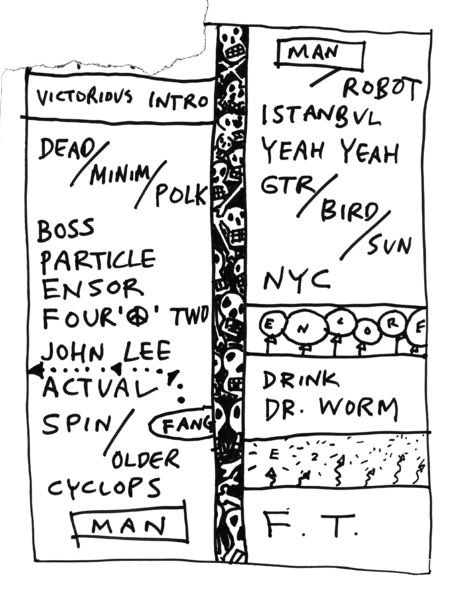 VICTORIOUS INTRO
DEAD/
MINIM/
POLK
BOSS
PARTICLE
ENSOR
FOUR'☮' TWO
JOHN LEE
ACTUAL
SPIN/ FANG
OLDER
CYCLOPS
MAN
MAN
ROBOT
ISTANBUL
YEAH YEAH
GTR/
BIRD/
SUN
NYC
ENCORE
DRINK
DR. WORM
E 2
F. T.